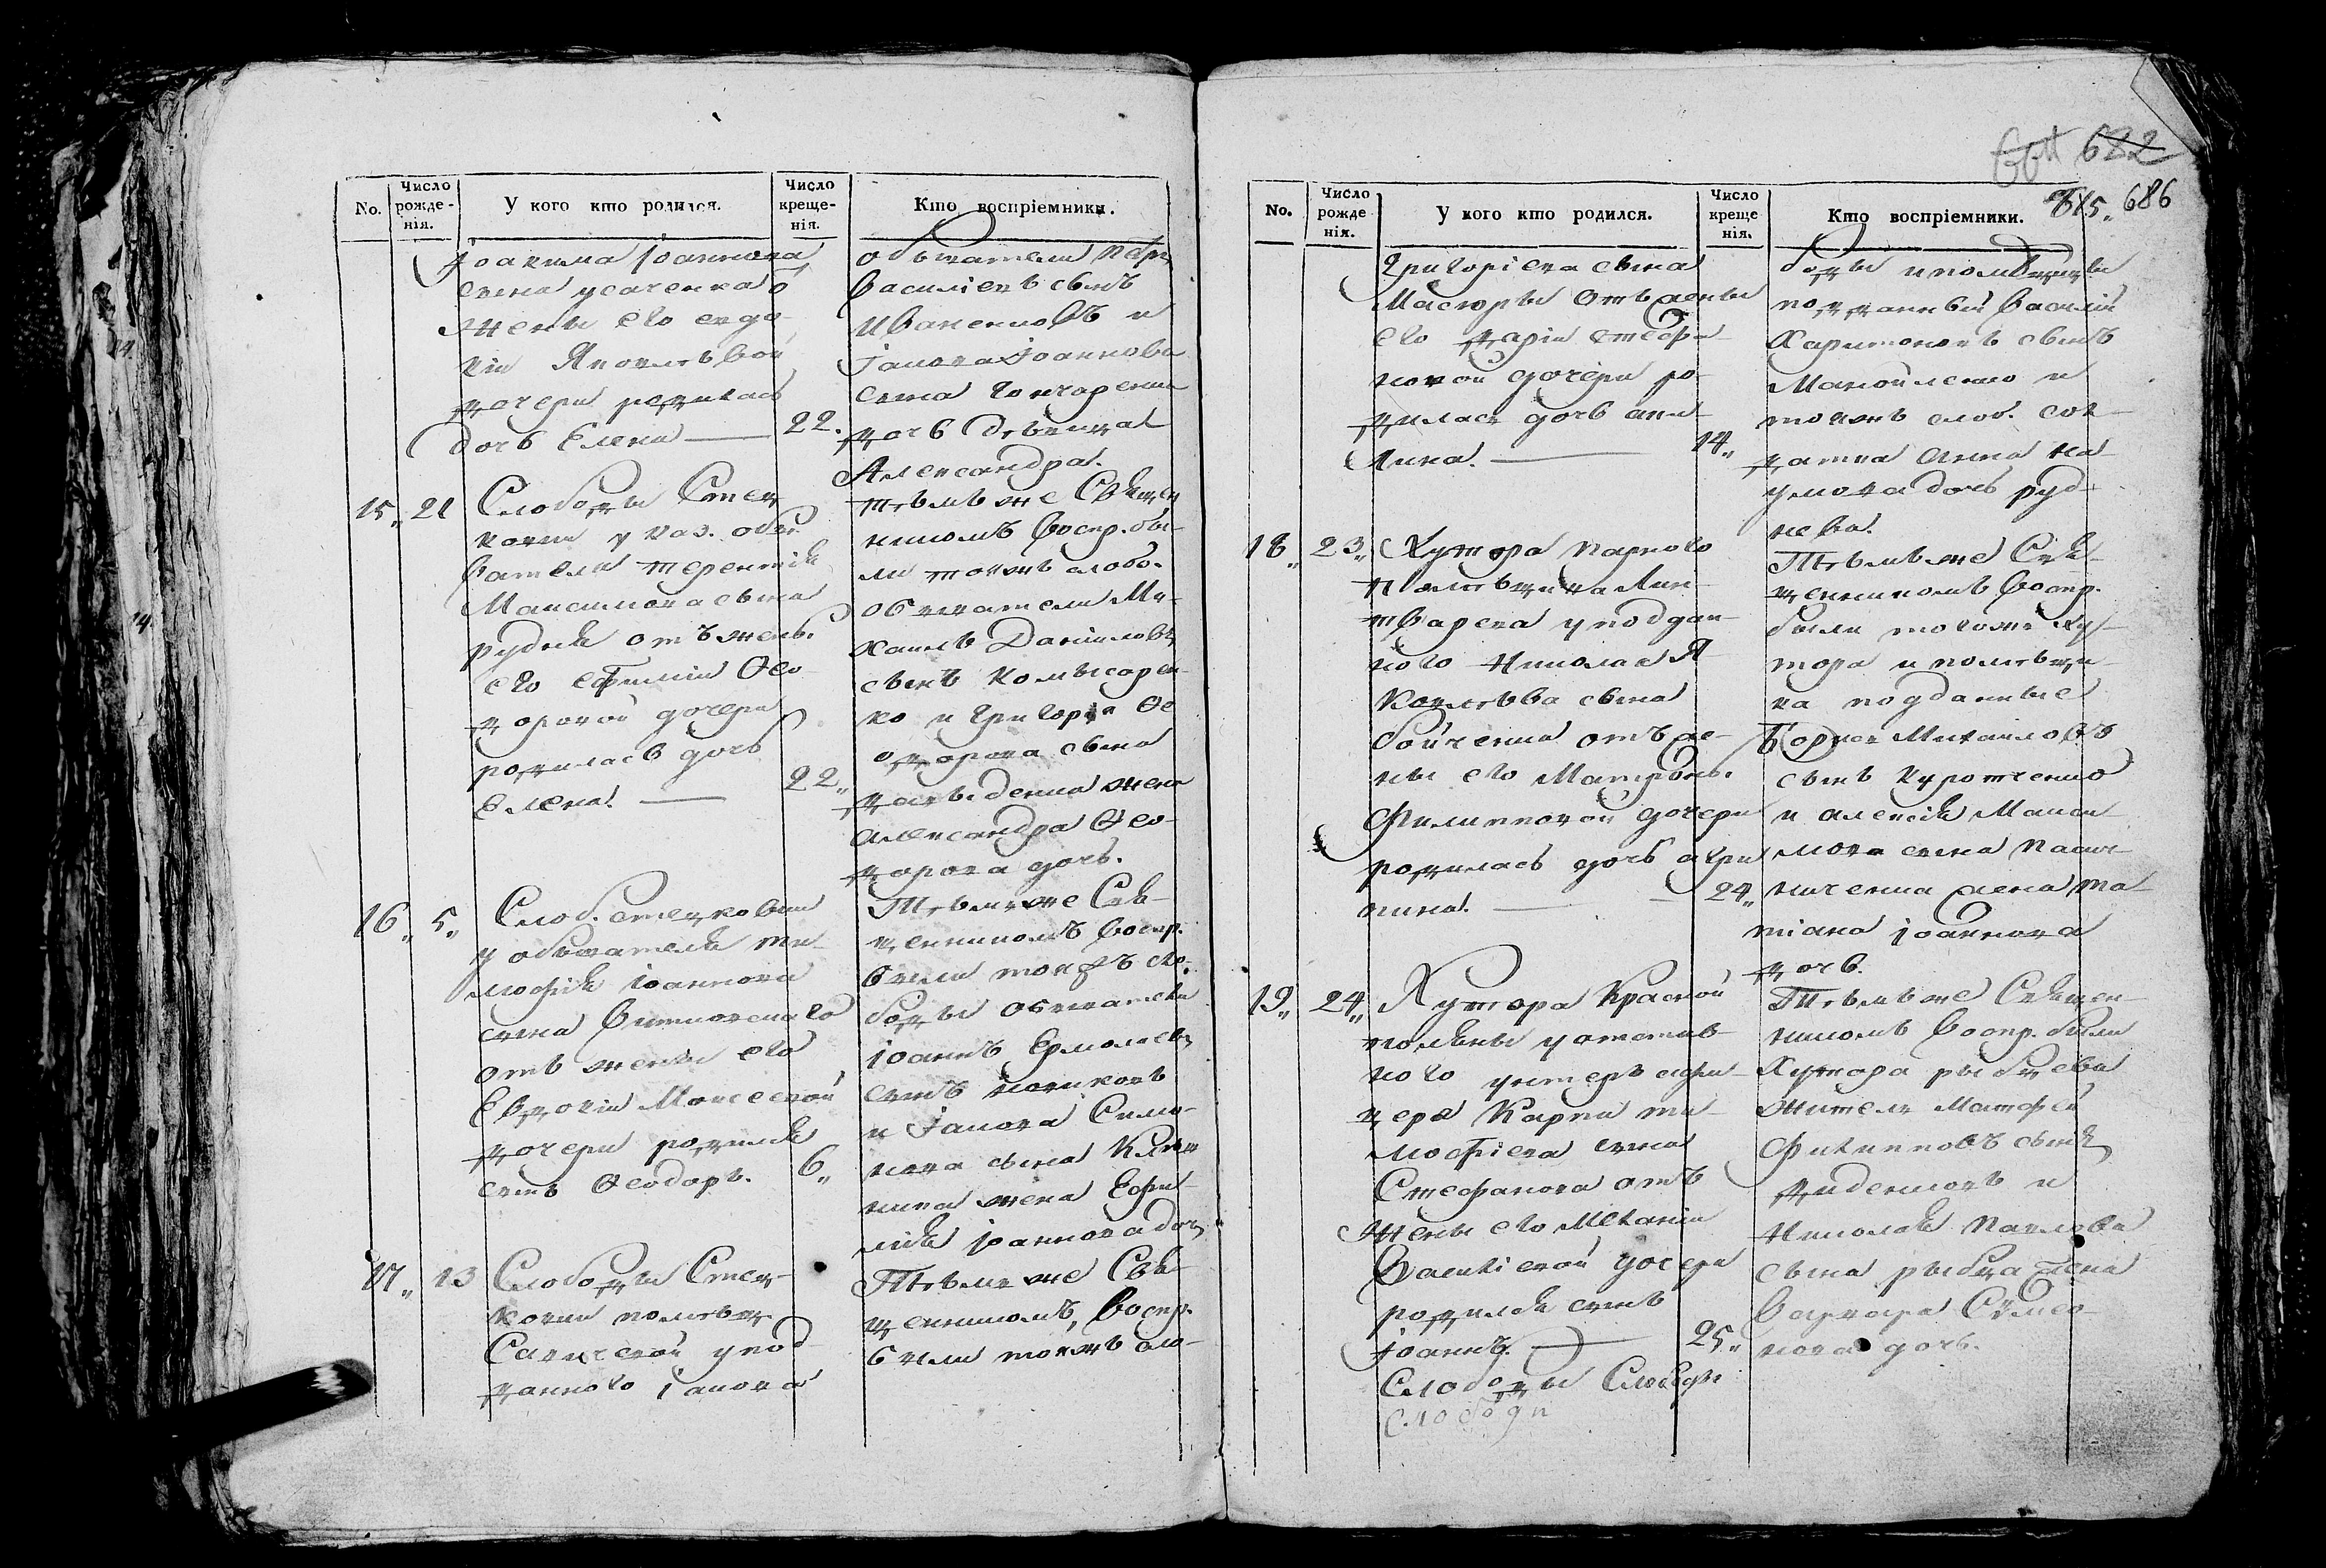 No.
Число рожде-нія.
У кого кто родился.
Число креще-нія.
Кто воспріемники.
Іоакима Іоаннова
сына усаченка о
жены его евдо-
кіи Яковлѣвой
дочери родилась
дочь Елена — 22.
обыватели
Василіевъ сынъ
Иваненковъ и
Іакова Іоаннова
сына Гончаренка
дочь дѣвица
Александра.
15„ 21
Слободы Стец
ковки у каз. обы
вателя терентія
Максимова сына
рудня отъ жены
его Ефиміи Ѳео
доровой дочери
родилась дочь
Елена. — 22„
тѣмъ же Священ
никомъ Воспр. бы-
ли тоижъ слобо.
обыватели Ми-
хаилъ Даниловъ
сынъ Комысарен-
ко и григорія Ѳе
одорова сына
жена
александра Ѳео-
дорова дочь.
16„ 5„
Слоб. стецковки
у обывателя ти-
мофія іоаннова
сына
отъ жены его
Евдокіи Моисеевой
дочери родился
сынъ Ѳеодоръ. 6„
Тѣмъ же Свя-
щенникомъ Воспр.
были тоижъ сло.
боды обыватели
іоаннъ Ермолаевъ
сынъ новиковъ
и Іакова Симо-
нова сына
жена Ефи-
мія іоаннова дочь
17„ 13
Слободы Стец-
ковки помѣщ.
Савичевой у под
данного іакова
Тѣмъ же Свя-
щенникомъ, Воспр.
были тоижъ сло-
682
615„ 686
No.
Число рожде нія.
У кого кто родился.
Число креще нія.
Кто воспріемники.
Григоріева сына
Масюры отъ жены
его дарія стефа-
новой дочери ро-
дилась дочь аки-
лина. — 14„
боды и помѣщицы
подданный Василій
Харитоновъ сынъ
Мануиленко и
тоижъ слоб. сол-
датка Анна На-
умова дочь руд-
нева.
18„ 23„
Хутора парного
помѣщика Лин-
тварева у поддан-
ного Николая Я-
ковлѣва сына
бойченка отъ же-
ны его Матроны
Филипповой дочери
родилась дочь агри
пина. — 24„
Тѣмъ же Свя-
щенникомъ Воспр.
были тогожъ ху-
тора и помѣщи-
ка подданные
Борисъ Михаиловъ
сынъ куротченко
и алексія Макси-
мова сына пасич-
ниченка жена та-
тіана іоаннова
дочь.
19„ 24„
Хутора Красной
поляны у отстав-
ного унтеръ офи-
цера Карпа ти-
мофіева сына
Стефанова отъ
жены его Меланіи
Василіевой дочери
родился сынъ
Іоаннъ. — 25„
Тѣмъ же Священ-
никомъ Воспр. были
Хутора рыбцева
жители Матфей
Филипповъ сынъ
диденковъ и
Николая Павлова
сына рыбца жена
Варвара Симео-
нова дочь.
Слободы
слободи